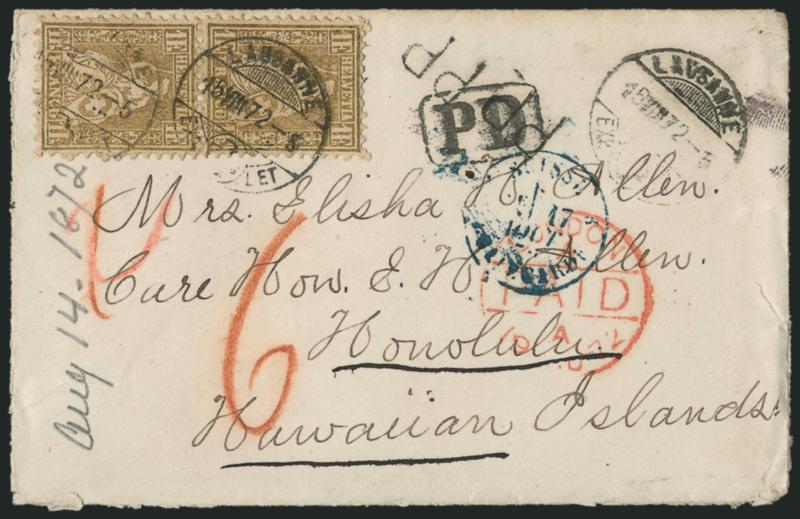 1F HELVETIA 1F
1F HELVETIA 1F
LAUSANNE
15 VIII 72 - 5
LAUSANNE
15 VIII 72 - 5
PD
PAID
Mrs. Elisha H. Allen.
Care Hon. E. H. Allen.
Honolulu.
Hawaiian Islands.
6
Aug 14 - 1872